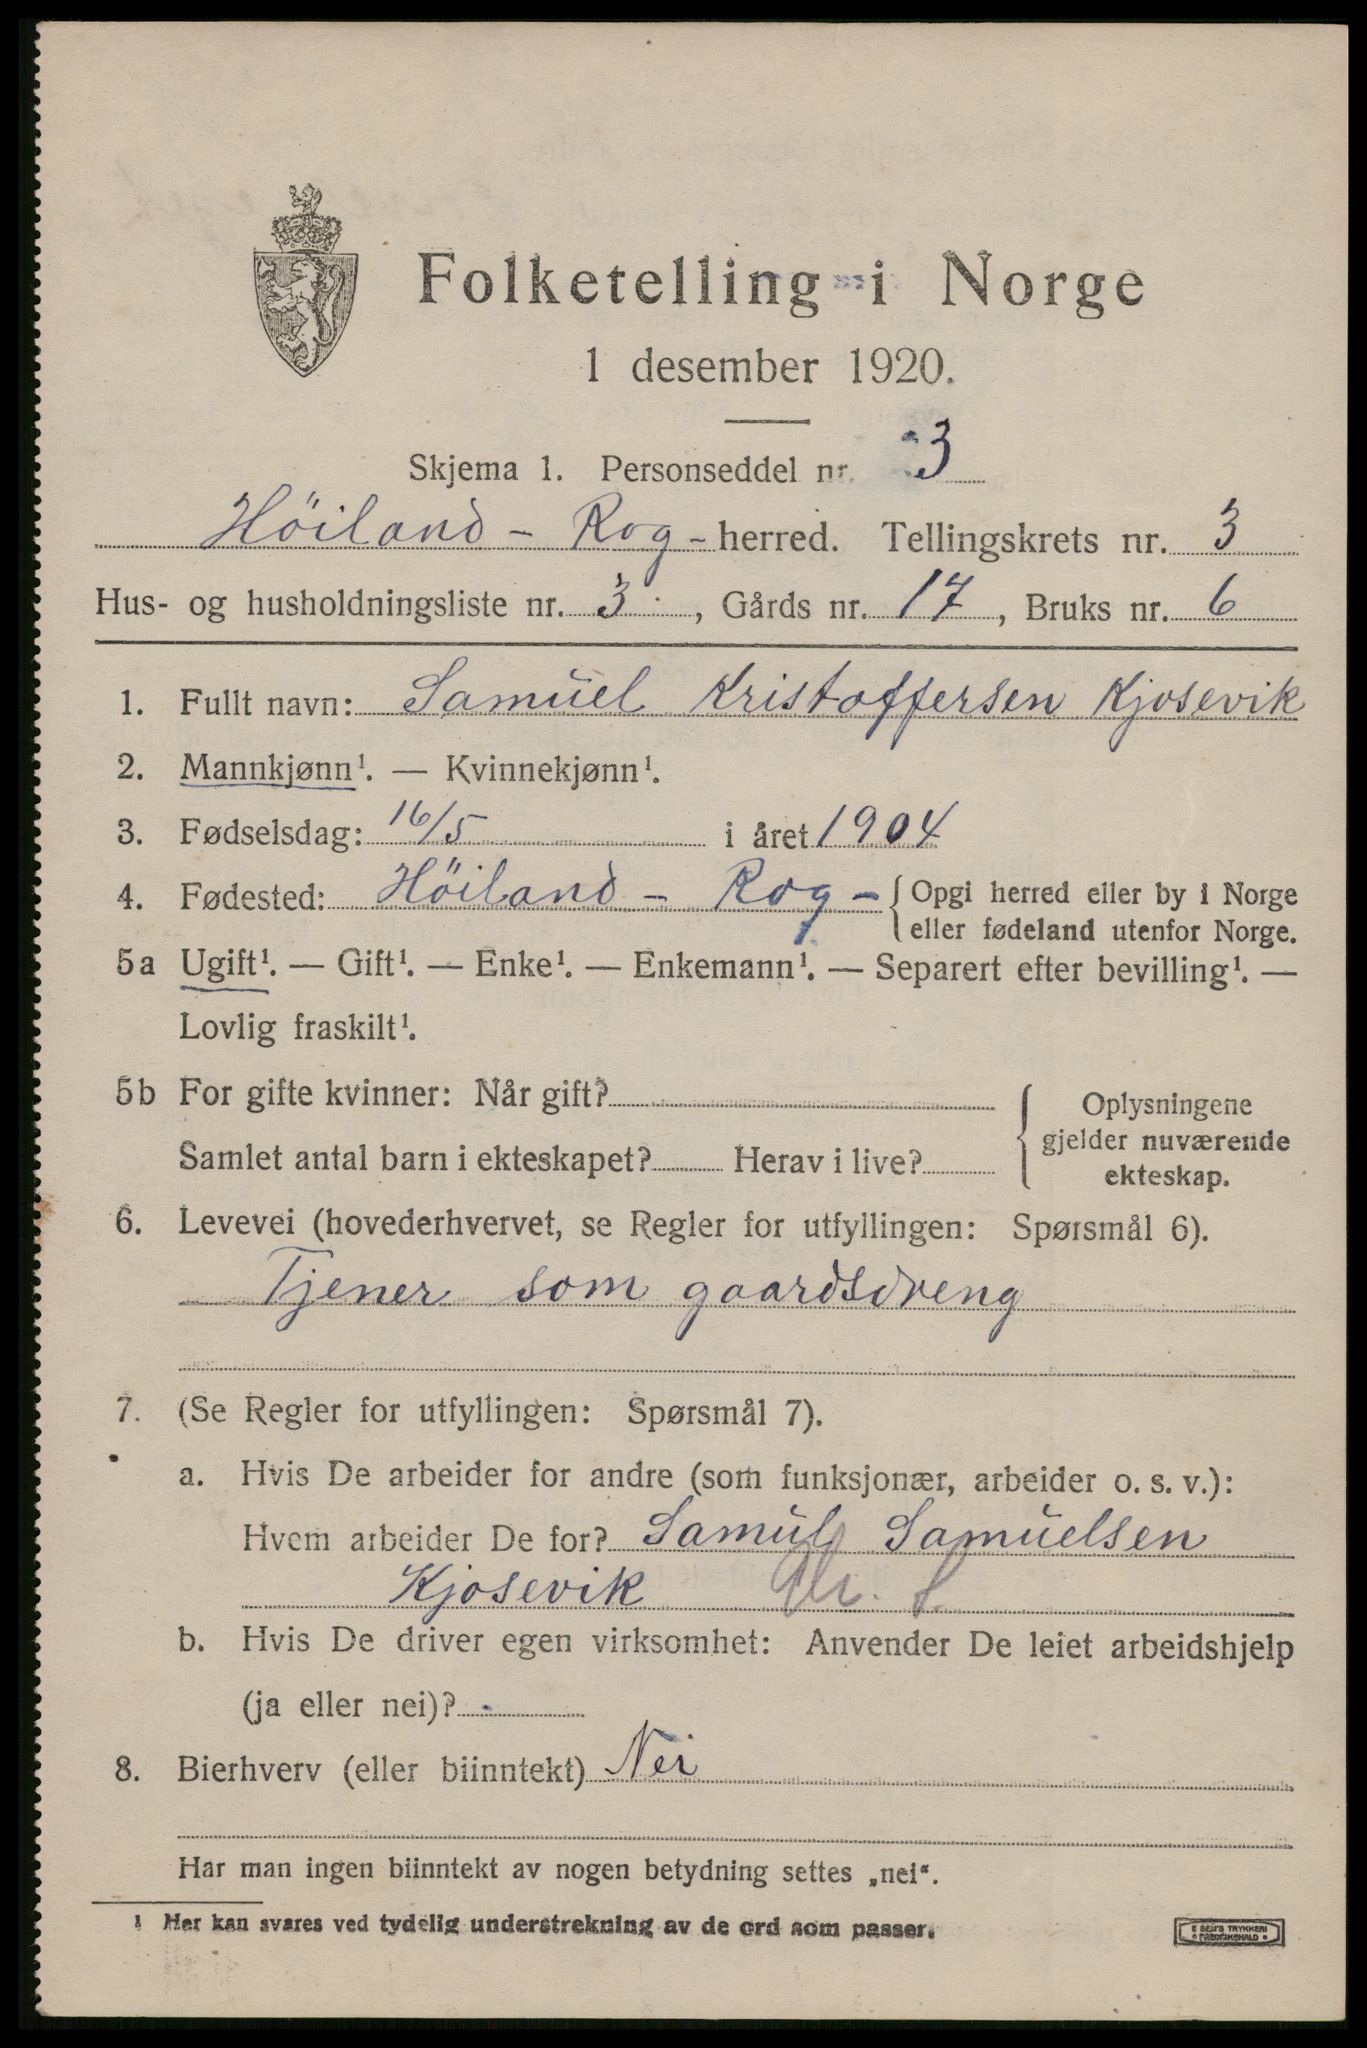 Folketelling i Norge
1 desember 1920.
Skjema 1. Personseddel nr. 3
Höiland - Rog - herred. Tellingskrets nr. 3
Hus- og husholdningsliste nr. 3, Gårds nr. 17, Bruks nr. 6
1. Fullt navn: Samüel Kristoffersen Kjosevik
2. Mannkjønn¹. — Kvinnekjønn¹.
3. Fødselsdag: 16/5 i året 1904
4. Fødested: Höiland - Rog - { Opgi herred eller by i Norge
eller fødeland utenfor Norge.
5a Ugift¹. — Gift¹. — Enke¹. — Enkemann¹. — Separert efter bevilling¹. —
Lovlig fraskilt¹.
5b For gifte kvinner: Når gift?
Samlet antal barn i ekteskapet? Herav i live?
{ Oplysningene
gjelder nuværende
ekteskap.
6. Levevei (hovederhvervet, se Regler for utfyllingen: Spørsmål 6).
Tjener som gaardsdreng
7. (Se Regler for utfyllingen: Spørsmål 7).
a. Hvis De arbeider for andre (som funksjonær, arbeider o. s. v.):
Hvem arbeider De for? Samül Samüelsen
Kjosevik
b. Hvis De driver egen virksomhet: Anvender De leiet arbeidshjelp
(ja eller nei)?
8. Bierhverv (eller biinntekt) Nei
Har man ingen biinntekt av nogen betydning settes „nei“.
1 Her kan svares ved tydelig understrekning av de ord som passer.
E SEM'S TRYKKERI
FREDRIKSHALD